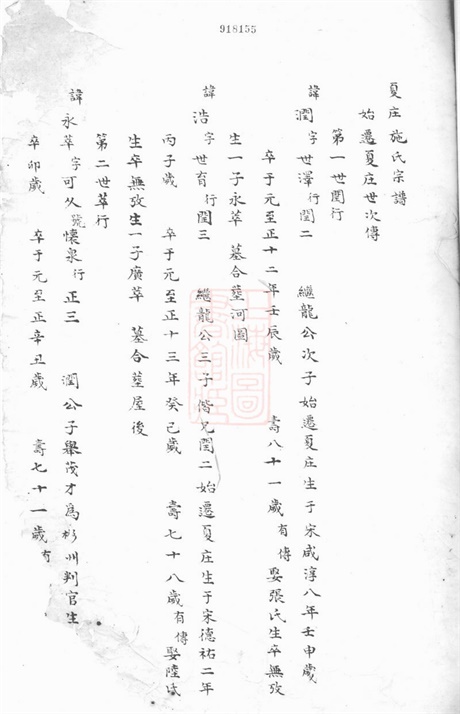 918155
夏庄施氏宗譜
始遷夏庄世次傳
第一世閏行
諱潤字世澤行閏二 繼龍公次子始遷夏庄生于宋咸淳八年壬申歲
卒于元至正十二年壬辰歲 壽八十一歲有傳娶張氏生卒無攷
生一子永萃 墓合塟河圖
諱浩字世育行閏三 繼龍公三子偕兄閏二始遷夏庄生于宋德祐二年
丙子歲 卒于元至正十三年癸巳歲 壽七十八歲有傳娶陸氏
生卒無攷生一子廣萃 墓合塟屋後
第二世萃行
諱永萃字可久號懷泉行正三 潤公子舉茂才爲彬州判官生
卒卯歲 卒于元至正辛丑歲 壽七十一歲有